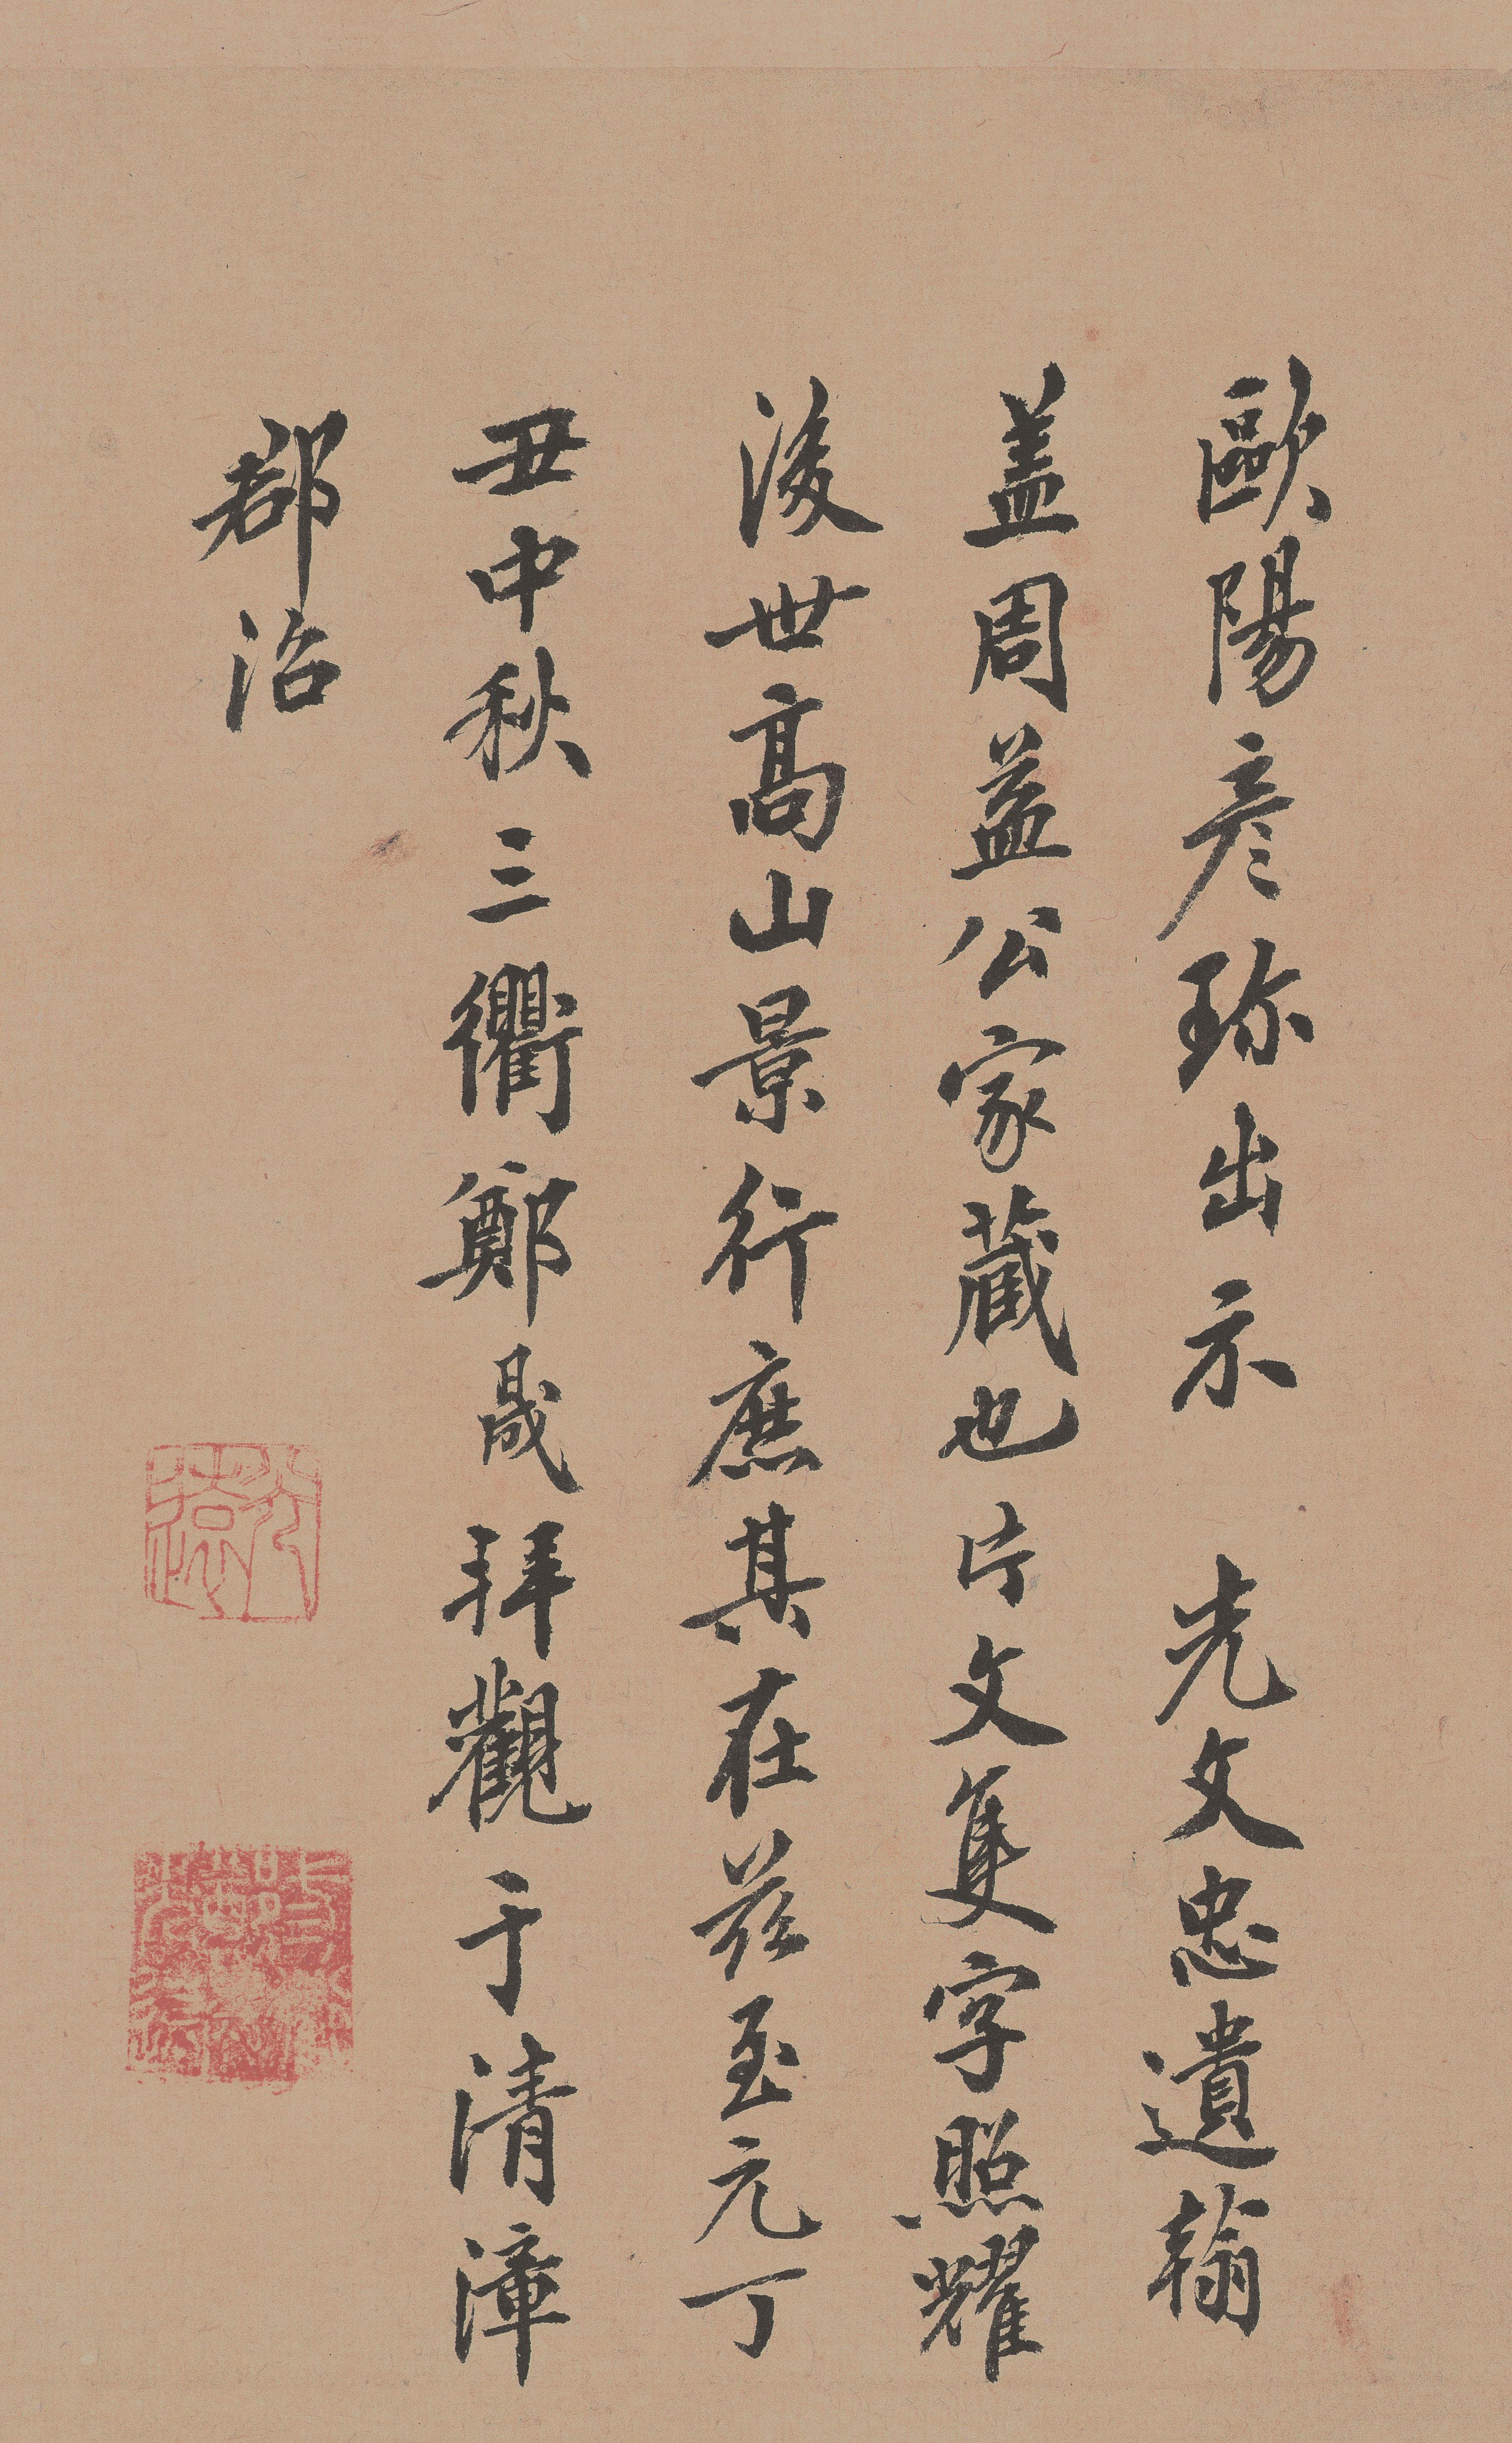 歐陽彥珎出示 先文忠遺翰
盖周益公家藏也片文隻字照耀
後世髙山景行庶其在茲至元丁
丑中秋三衢鄭晟拜觀于清漳
郡治